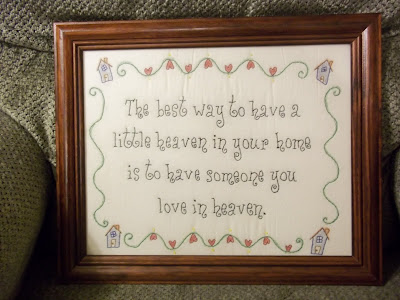 The best way to have a
little heaven in your home
is to have someone you
love in heaven.